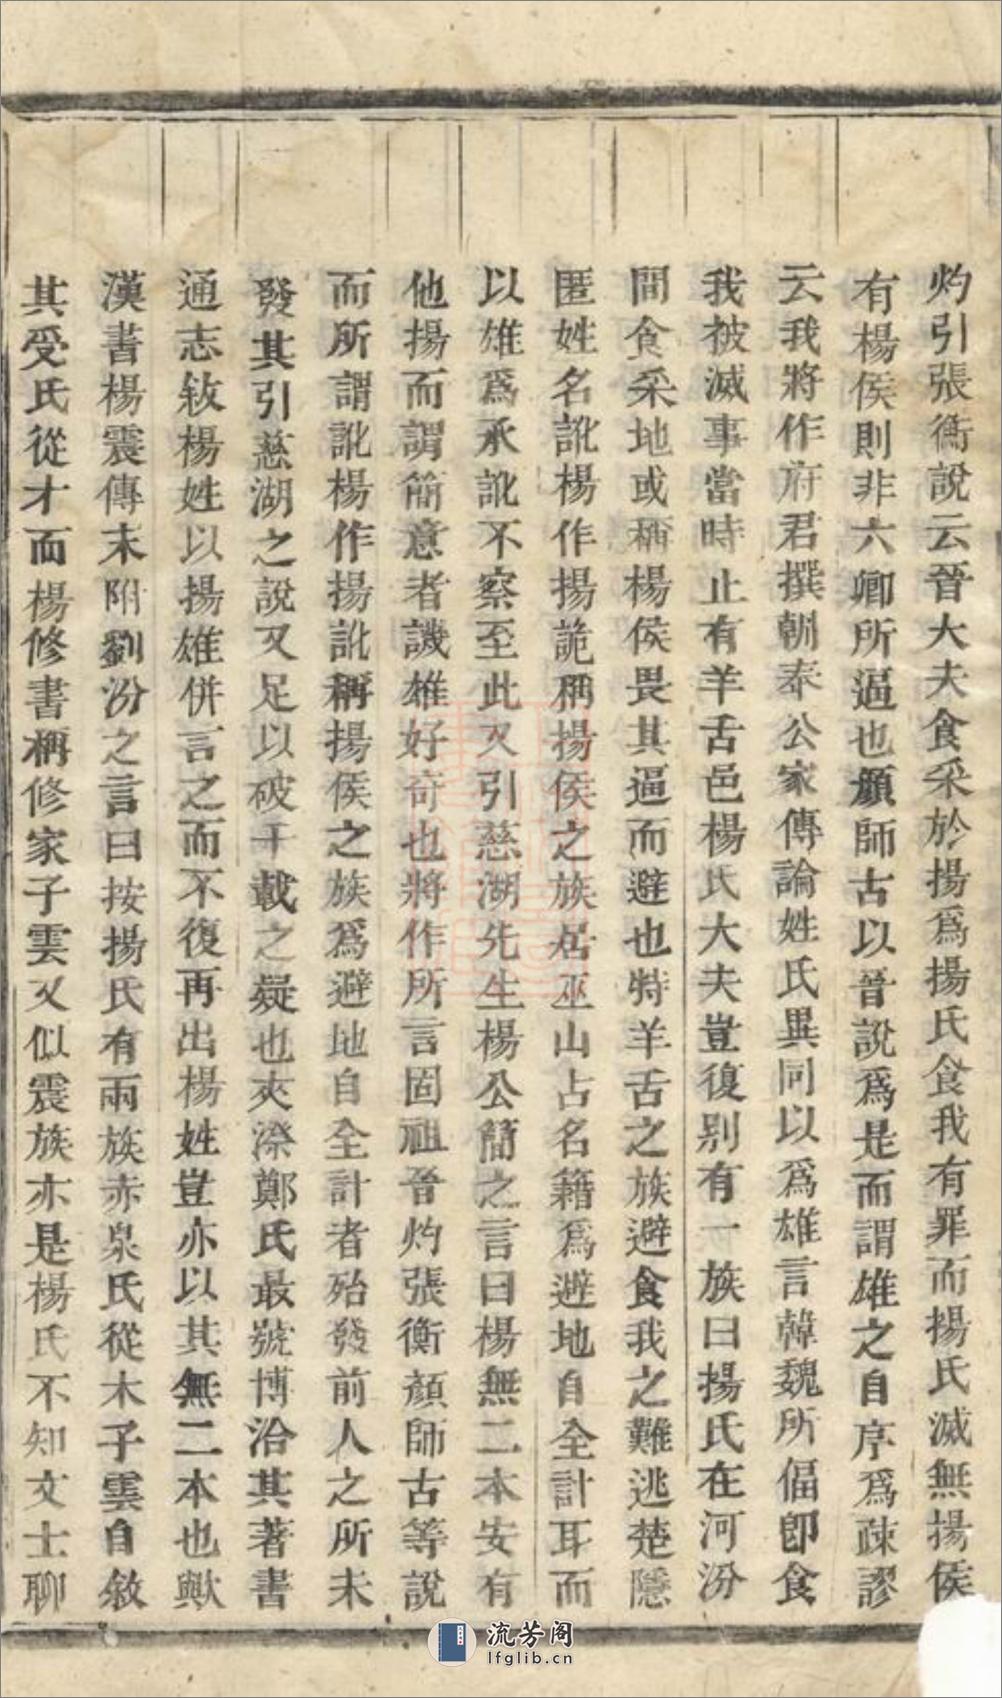 灼引張衡說云晉大夫食采於揚爲揚氏食我有罪而揚氏滅無揚侯
有楊侯則非六卿所逼也顏師古以晉說爲是而謂雄之自序爲疎謬
云我將作府君撰朝奉公家傳論姓氏異同以爲雄言韓魏所偪卽食
我被滅事當時止有羊舌邑楊氏大夫豈復别有一族曰揚氏在河汾
間食采地或稱楊侯畏其逼而避也特羊舌之族避食我之難逃楚隱
匿姓名訛楊作揚詭稱揚侯之族居巫山占名籍爲避地自全計耳而
以雄爲承訛不察至此又引慈湖先生楊公簡之言曰楊無二本安有
他揚而謂簡意者譏雄好奇也將作所言固祖晉灼張衡顏師古等說
而所謂訛楊作揚訛稱揚侯之族爲避地自全計者殆發前人之所未
發其引慈湖之說又足以破千載之疑也夾漈鄭氏最號博洽其著書
通志敘楊姓以揚雄併言之而不復再出楊姓豈亦以其無二本也歟
漢書楊震傳末附劉汾之言曰按揚氏有兩族赤泉氏從木子雲自敘
其受氏從才而楊修書稱修家子雲又似震族亦是楊氏不知文士聊
流芳阁
lfglib.cn